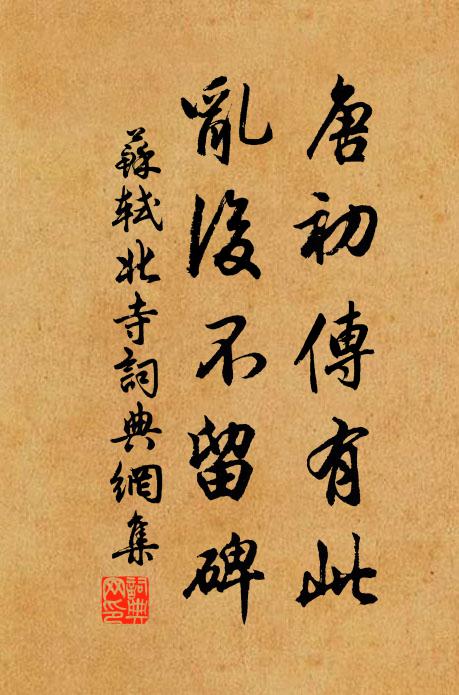 唐初傳有此
亂後不留碑
蘇軾北寺詞典網集
詞典網印